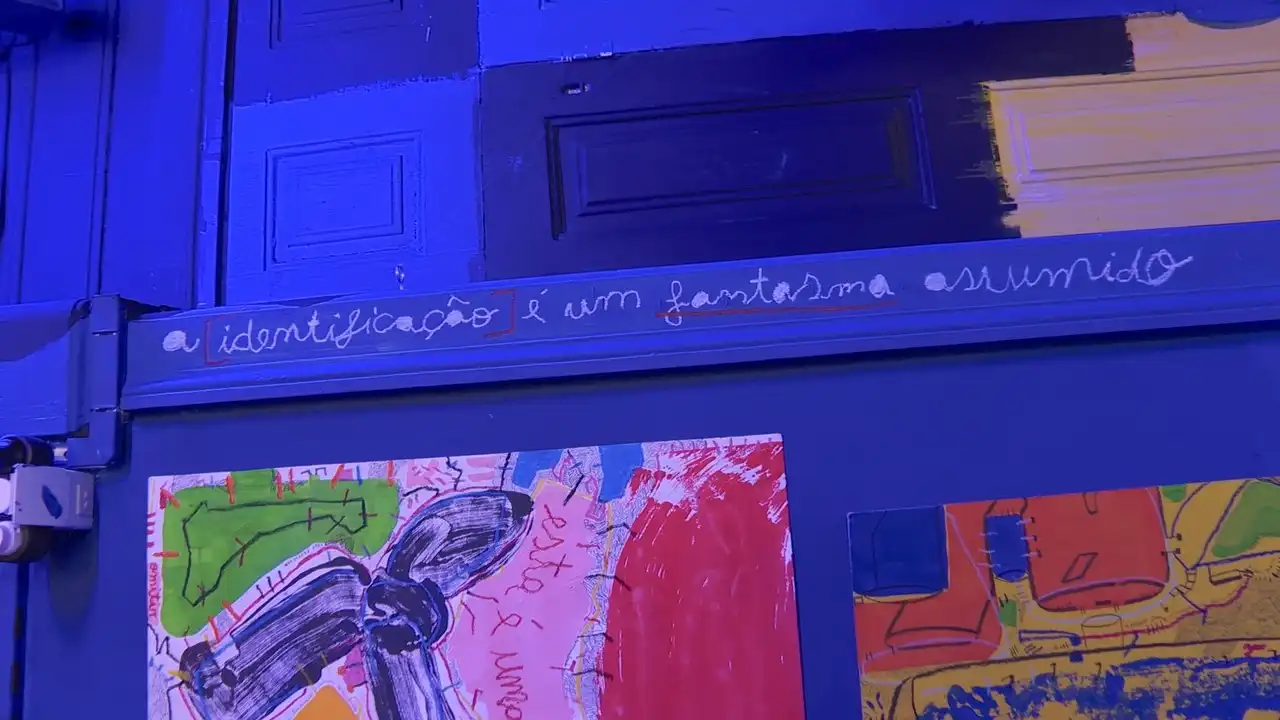 a [identificação] é um fantasma assumido
esta é uma